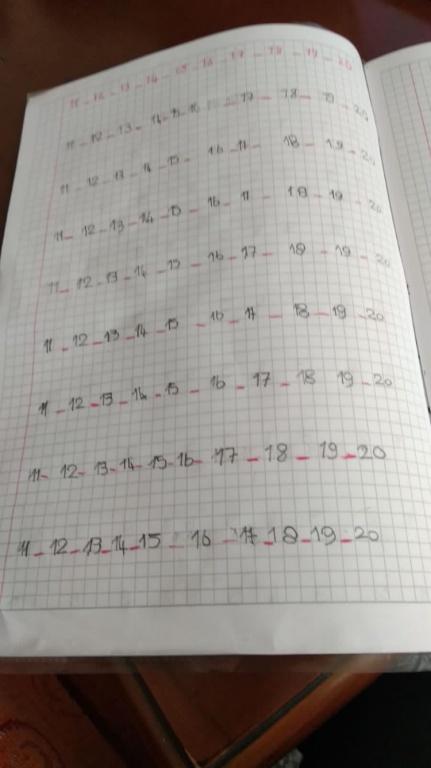 11 - 12 - 13 - 14 - 15 - 16 - 17 - 18 - 19 - 20
11 - 12 - 13 - 14 - 15 - 16 - 17 - 18 - 19 - 20
11 - 12 - 13 - 14 - 15 - 16 - 17 - 18 - 19 - 20
11 - 12 - 13 - 14 - 15 - 16 - 17 - 18 - 19 - 20
11 - 12 - 13 - 14 - 15 - 16 - 17 - 18 - 19 - 20
11 - 12 - 13 - 14 - 15 - 16 - 17 - 18 - 19 - 20
11 - 12 - 13 - 14 - 15 - 16 - 17 - 18 19 - 20
11 - 12 - 13 - 14 - 15 - 16 - 17 - 18 - 19 - 20
11 - 12 - 13 - 14 - 15 - 16 - 17 - 18 - 19 - 20